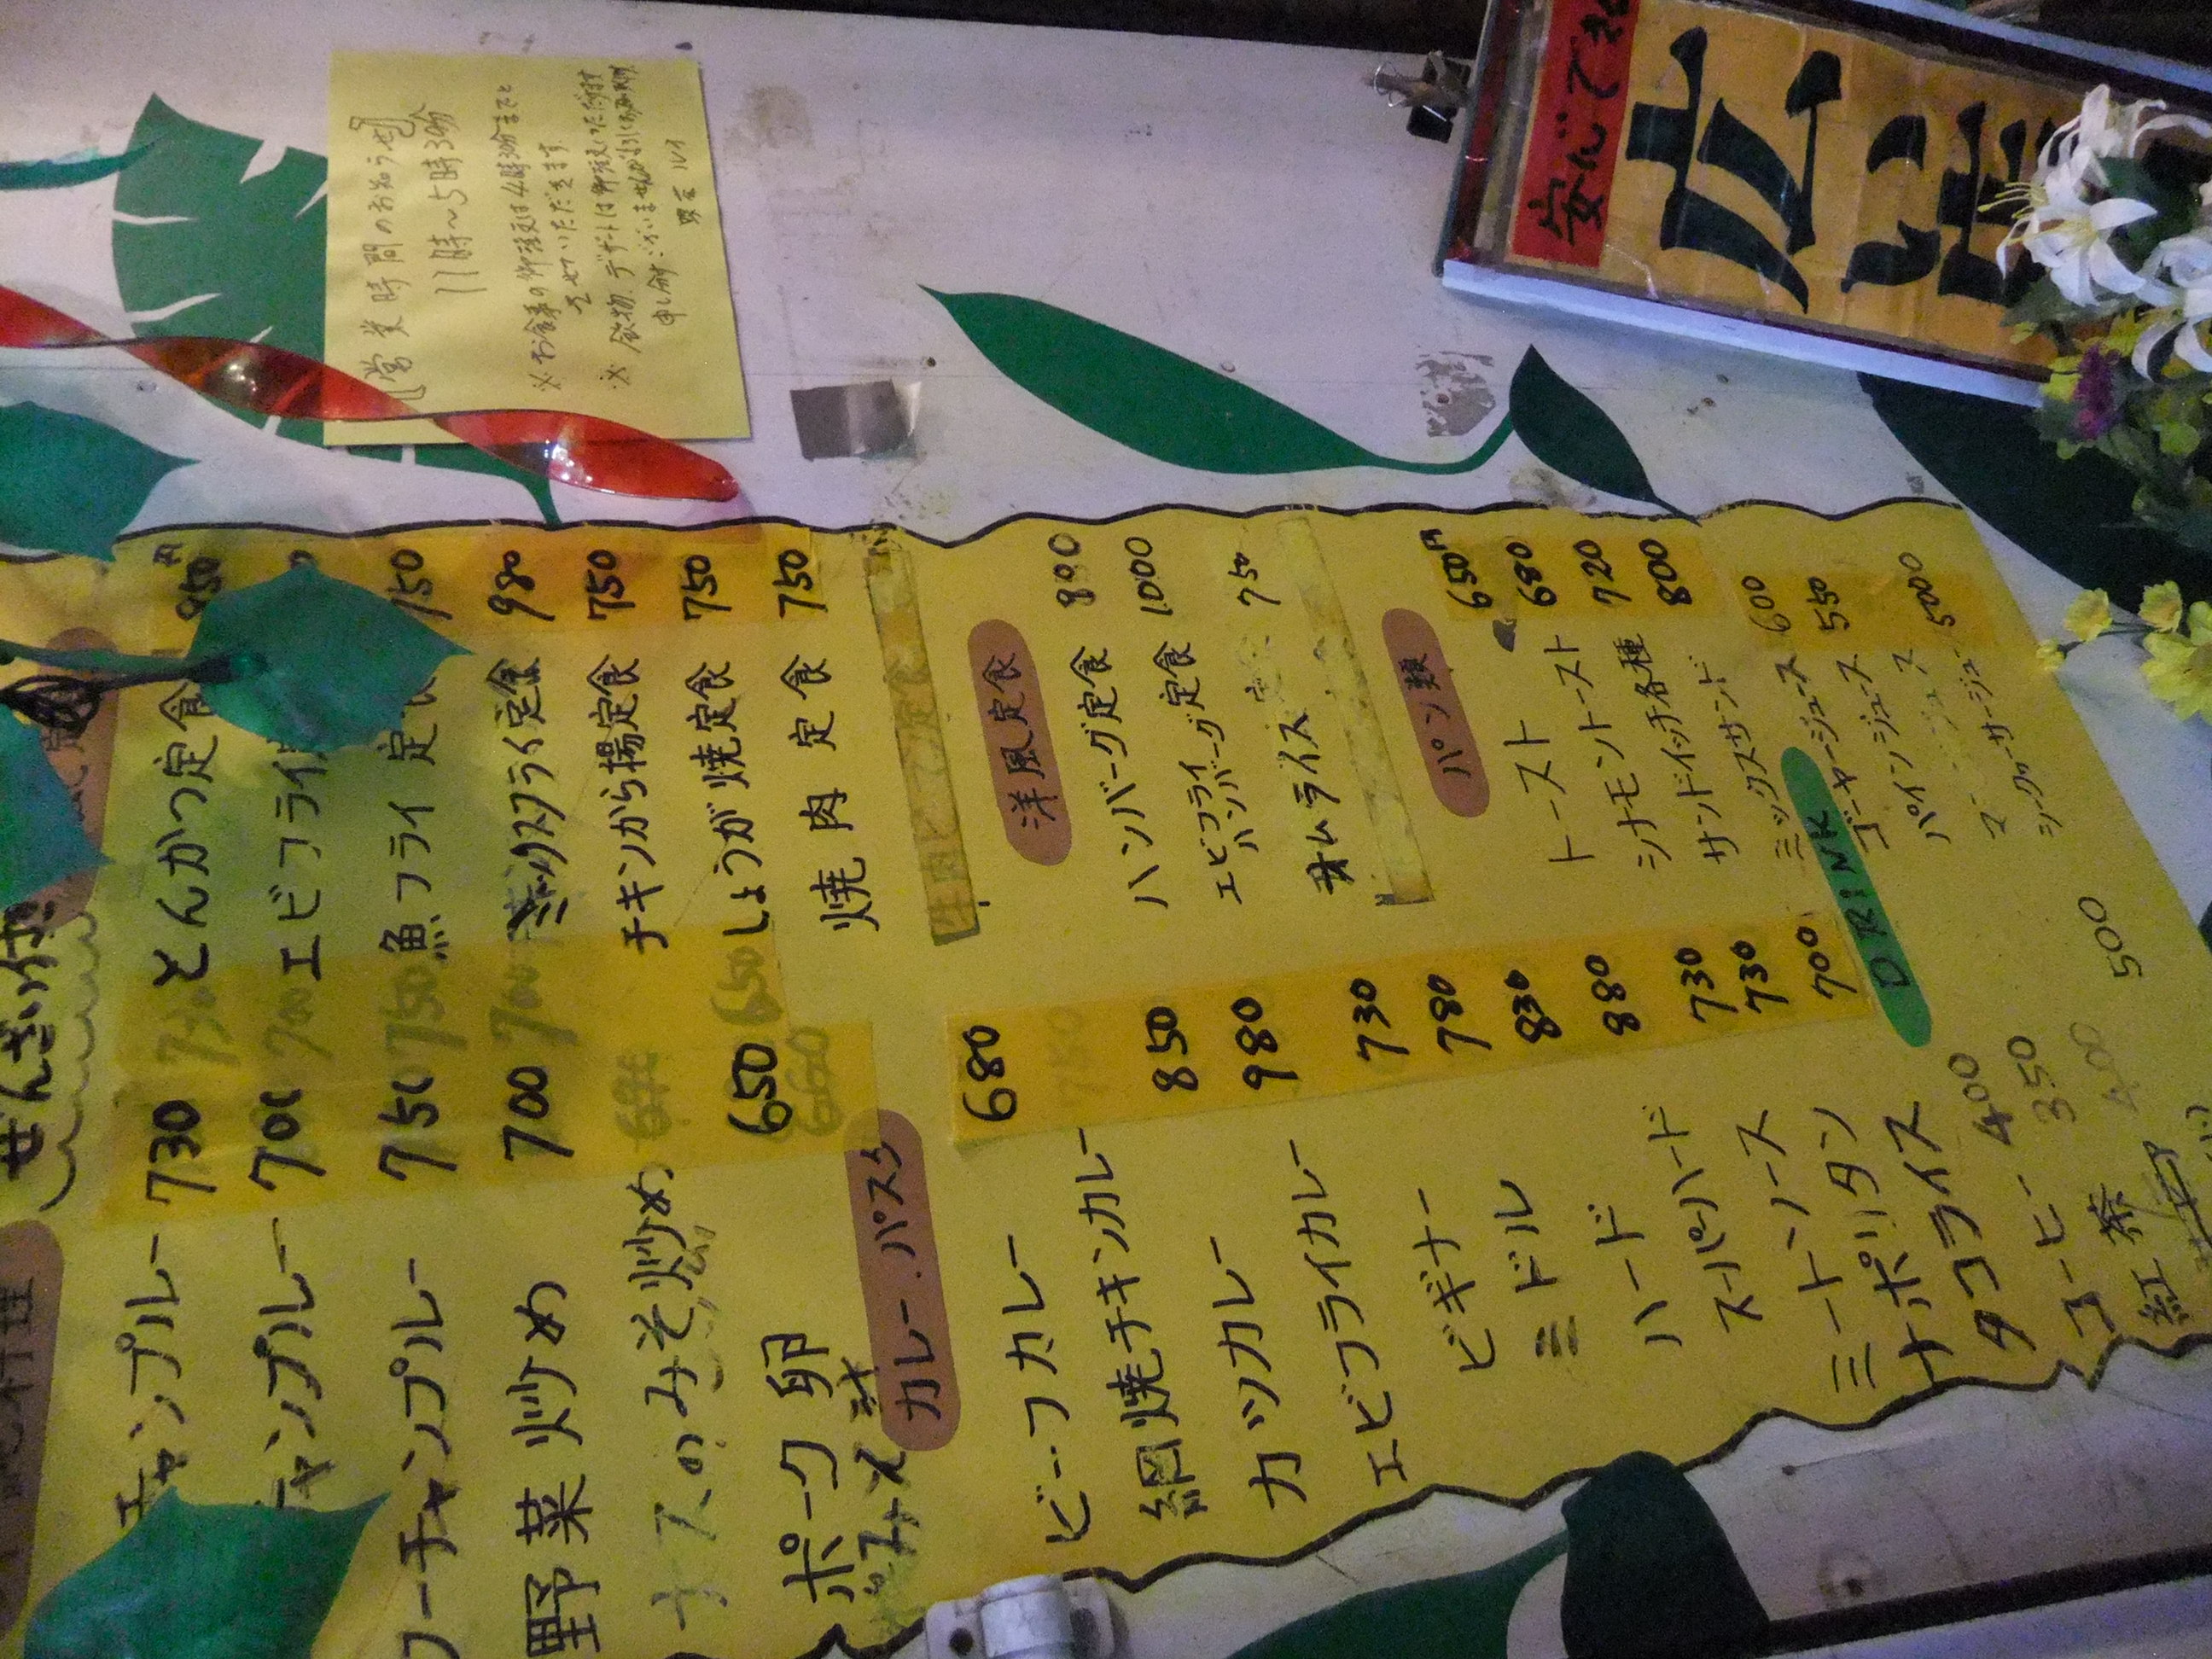 【営業時間のお知らせ】
11時〜5時30分
※お食事の御注文は4時30分までと
させていただきます。
※飲物、デザートは御注文いただけます
申し分けございませんがよろしくお願い
安んじてお
広
い
ぜんざい付
チャンプルー 730
チャンプルー 700
フーチャンプルー 750
野菜炒め 700
ナスのみそ炒め
ポーク卵 650
みそ汁
とんかつ定食 850円
エビフライ
魚フライ定食 750
ミックスフライ定食 980
チキンから揚定食 750
しょうが焼定食 750
焼肉定食 750
カレー・パスタ
ビーフカレー 680
網焼チキンカレー
カツカレー 850
エビフライカレー 980
ビギナー 730
ミドル 780
ハード 830
スーパーハード 880
ミートソース 730
ナポリタン 730
タコライス 700
洋風定食
ハンバーグ定食 800
エビフライ
ハンバーグ定食 1000
オムライス 750
パン類
トースト 650円
シナモントースト 680
サンドイッチ各種 720
ミックスサンド 800
DRINK
コーヒー 400
紅茶 350
400
500
ゴーヤージュース 600
パインジュース 550
シークヮーサージュース 500